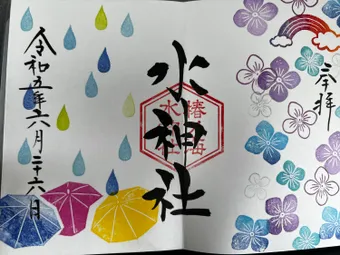 奉拝
水神社
椿海
水神社
令和五年六月二十六日